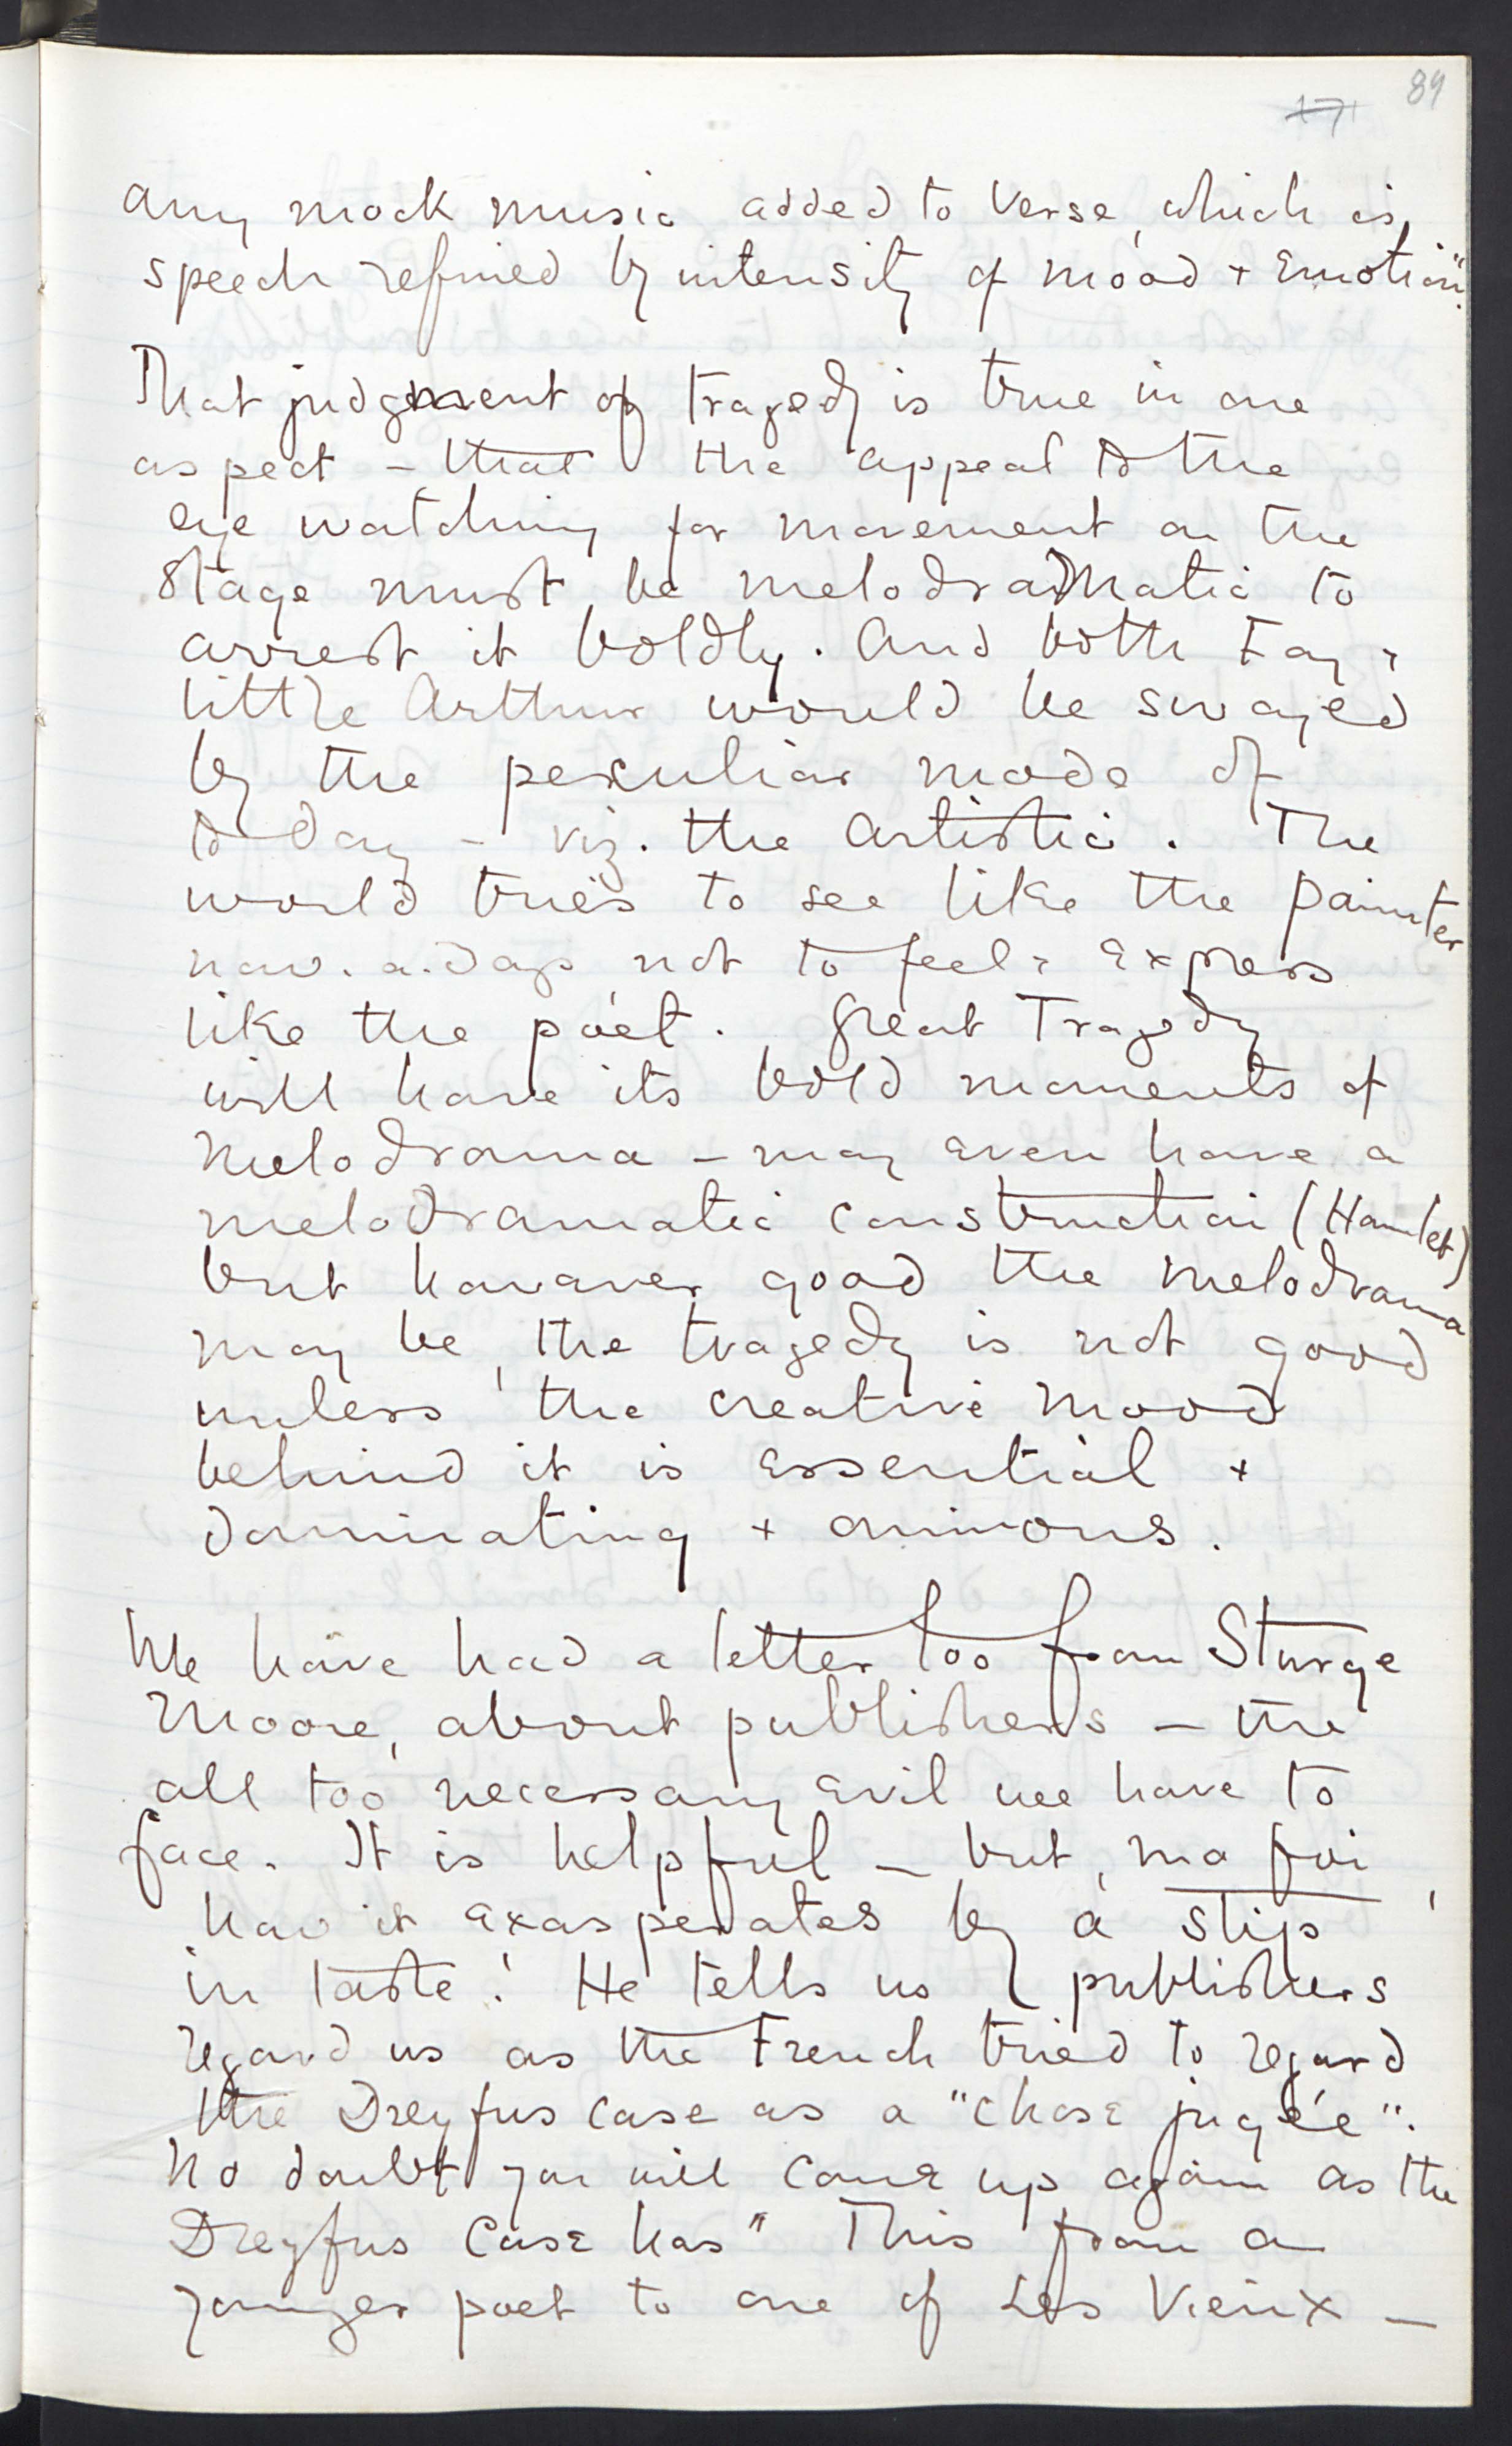 89
any mock music added to verse, which is,
speech refined by intensity of mood + emotion".
That judgment of tragedy is true in one
aspect – that the appeal to the
eye watching for movement on the
stage must be melodramatic to
arrest it boldly. And both Fay &
little Arthur would be swayed
by the peculiar mode of
to day – viz. the artistic. The
world tries to see like the painter
now. a. days not to feel & express
like the poet. Great Tragedy
will have its bold moments of
melodrama – may even have a
melodramatic construction (Hamlet)
but however good the melodrama
may be, the tragedy is not good
unless the creative mood
behind it is essential +
dominating + ominous.
We have had a letter too from Sturge
Moore, about publishers – the
all too necessary evil we have to
face. It is helpful – but, ma foi,
how it exasperates by a slip
in taste! He tells us publishers
regard us as the French tried to regard
the Dreyfus case as a "chose jugée".
No doubt you will come up again as the
Dreyfus case has" This from a
younger poet to one of Les Vieux –